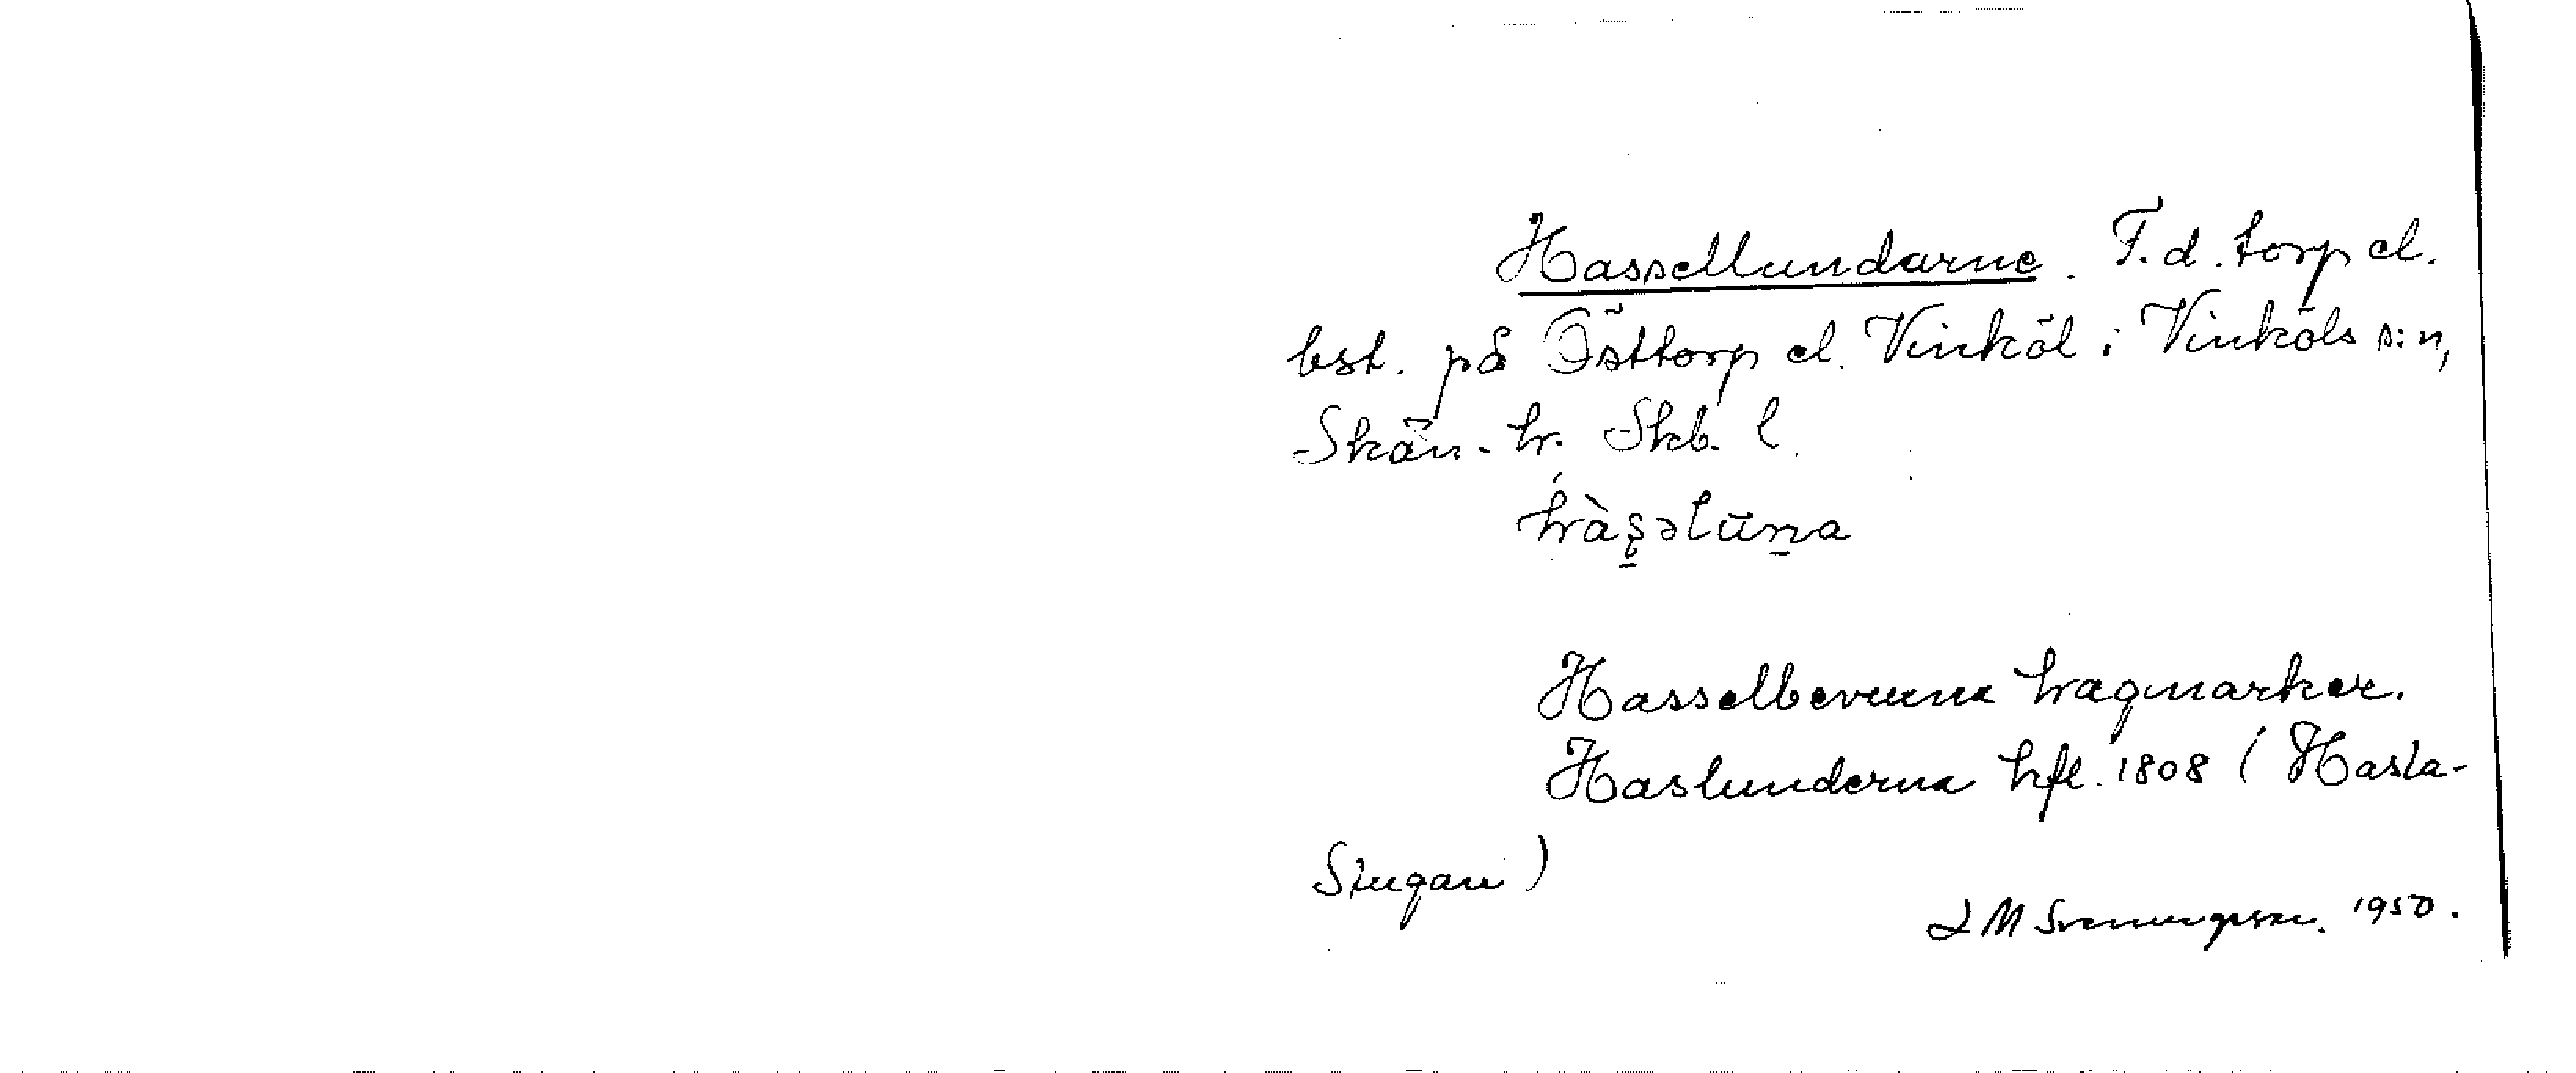 Hassellundarne. F.d. torp el.
bst. på Östtorp el. Vinköl i Vinköls s:n,
Skån. hr. Skb. l.
hàsəlūna
Hasselbevuxna hagmarker.
Haslunderna hfl. 1808 (Hasla-
Stugan)
1950.